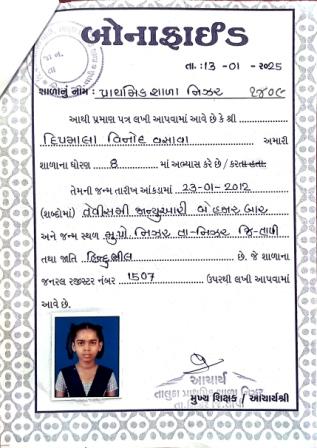 બોનાફાઈડ
તા. :13 - 01 - 2025
શાળાનું નામ : પ્રાથમિક શાળા નિઝર
આથી પ્રમાણ પત્ર લખી આપવામાં આવે છે કે શ્રી
દિપમાલા વિનોદ વસાવા અમારી
શાળાના ધોરણ 8 માં અભ્યાસ કરે છે / કરતા હતા.
તેમની જન્મ તારીખ આંકડામાં 23-01-2012
(શબ્દોમાં) તેવીસમી જાન્યુઆરી બે હજાર બાર
અને જન્મ સ્થળ મુ.પો. નિઝર તા-નિઝર જિ-તાપી
તથા જાતિ હિન્દુ ભીલ છે. જે શાળાના
જનરલ રજીસ્ટર નંબર 1507 ઉપરથી લખી આપવામાં
આવે છે.
આચાર્ય
તાલુકા પ્રાથમિક શાળા નિઝર
મુખ્ય શિક્ષક / આચાર્યશ્રી